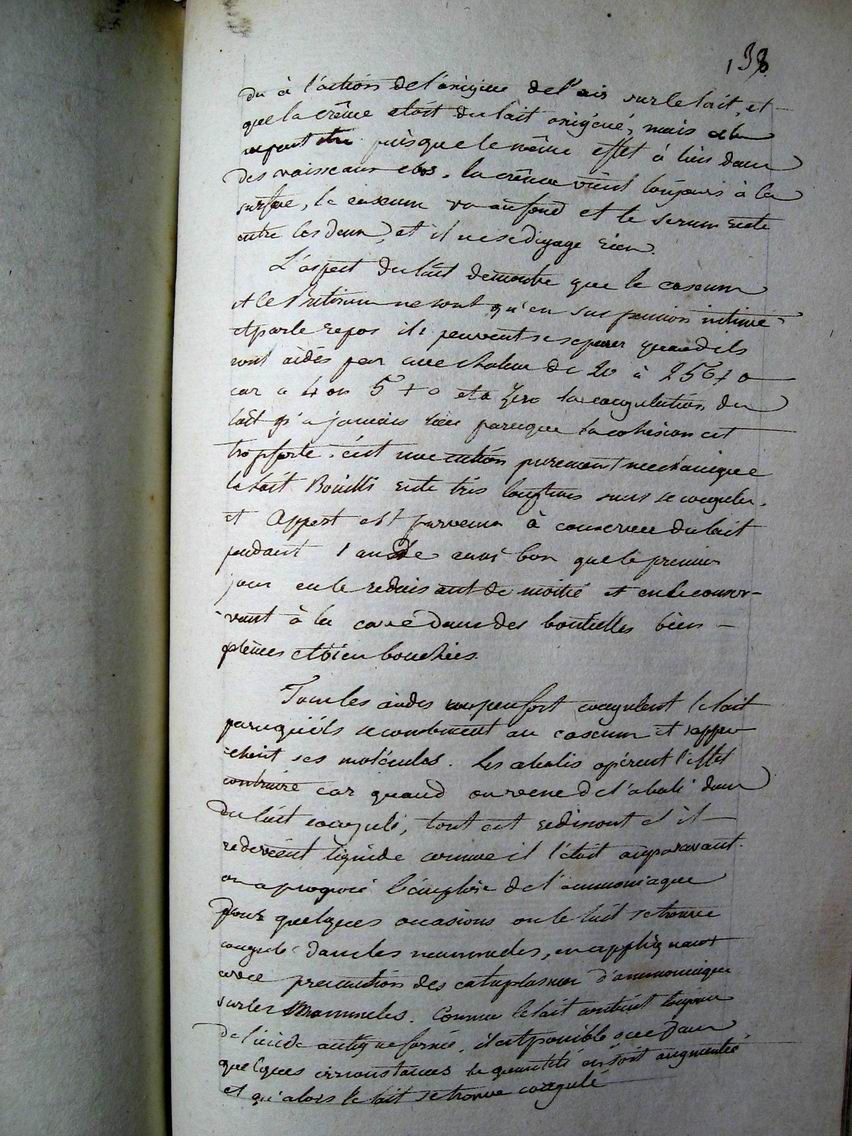 138.
du à l'action de l'oxigène de l'air sur le lait, et
que la crême etoit du lait oxigéné, mais
puisque le même effet à lieu dans
des vaisseaux clos. la crême vient toujours à la
surface, le caseum va au fond et le serum reste
entre les deux, et il ne se dégage rien.
L'aspect du lait demontre que le caseum
et le butirum ne sont qu'en suspension intime
et par le repos ils peuvent se separer quand ils
sont aidés par une chaleur de 20 à 25 + 0
car a 4 ou 5 + 0 et a Zero la coagulation du
lait n'a jamais lieu parceque la cohésion est
trop forte. c'est une action purement mechanique
le lait Bouilli reste très longtems sans se coaguler.
et Appert est parvenu à conserver du lait
pendant 1 an aussi bon que le premier
jour en le reduisant de moitié et en le conser-
vant à la cave dans des bouteilles bien
pleines et bien bouchées.
Tous les acides un peu fort coagulent le lait
parcequ'ils se combinent au caseum et rappro
chent ses molécules. Les alcalis opérent l'effet
contraire car quand on verse de l'alcali dans
du lait coagulé, tout est redissout et il
redevient liquide comme il l'étoit auparavant.
on a proposé l'emploie de l'ammoniaque
pour quelques occasions ou le lait se trouve
coagulé dans les mammeles, en appliquant
avec precaution des cataplasmes d'ammoniaque
sur les Mammeles. Comme le lait contient toujours
de l'acide acétique formé, il est possible que dans
quelques circonstances la quantité en soit augmentée
et qu'alors le lait se trouve coagulé